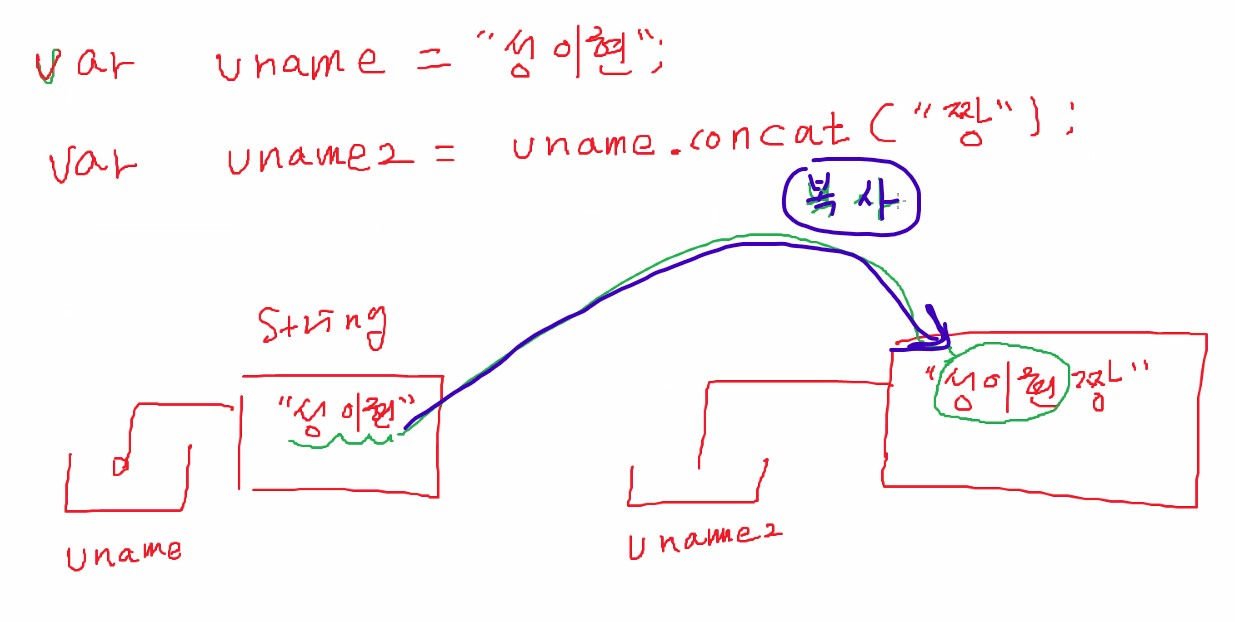 var uname = "성이현";
var uname2 = uname.concat("짱");
복사
String
"성이현"
"성이현짱"
uname
uname2